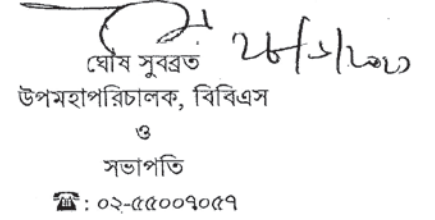 ২৮/১/২০২০
ঘোষ সুবব্রত
উপমহাপরিচালক, বিবিএস
ও
সভাপতি
☎: ০২-৫৫০০৭০৫৭